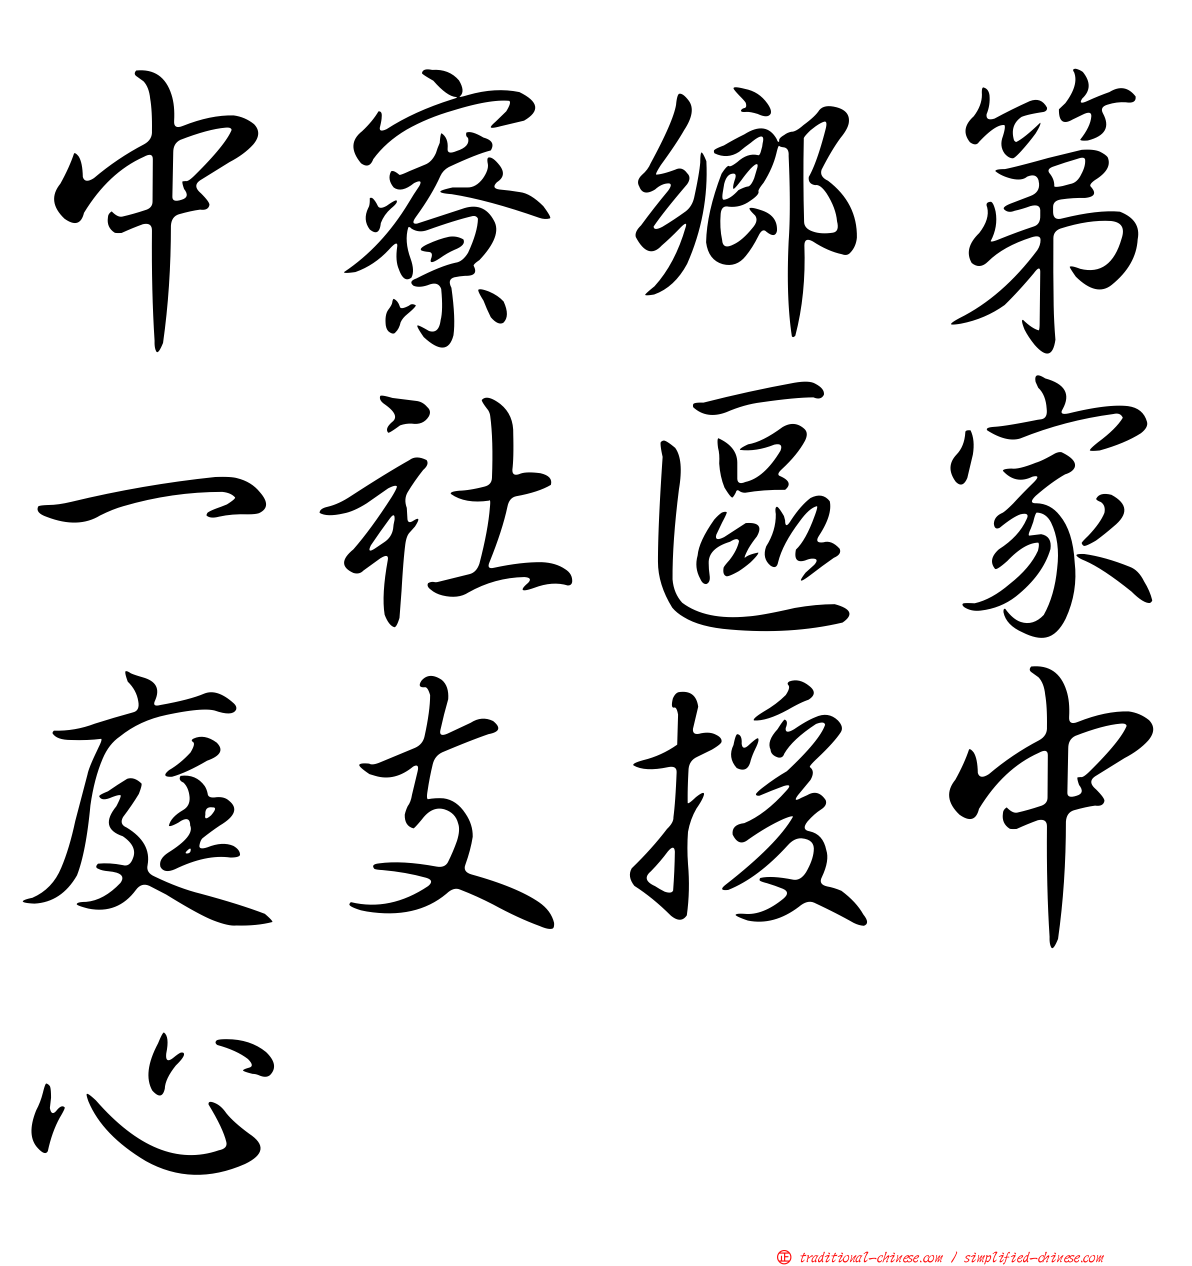 中寮鄉第
一社區家
庭支援中
心
正 traditional-chinese.com / simplified-chinese.com